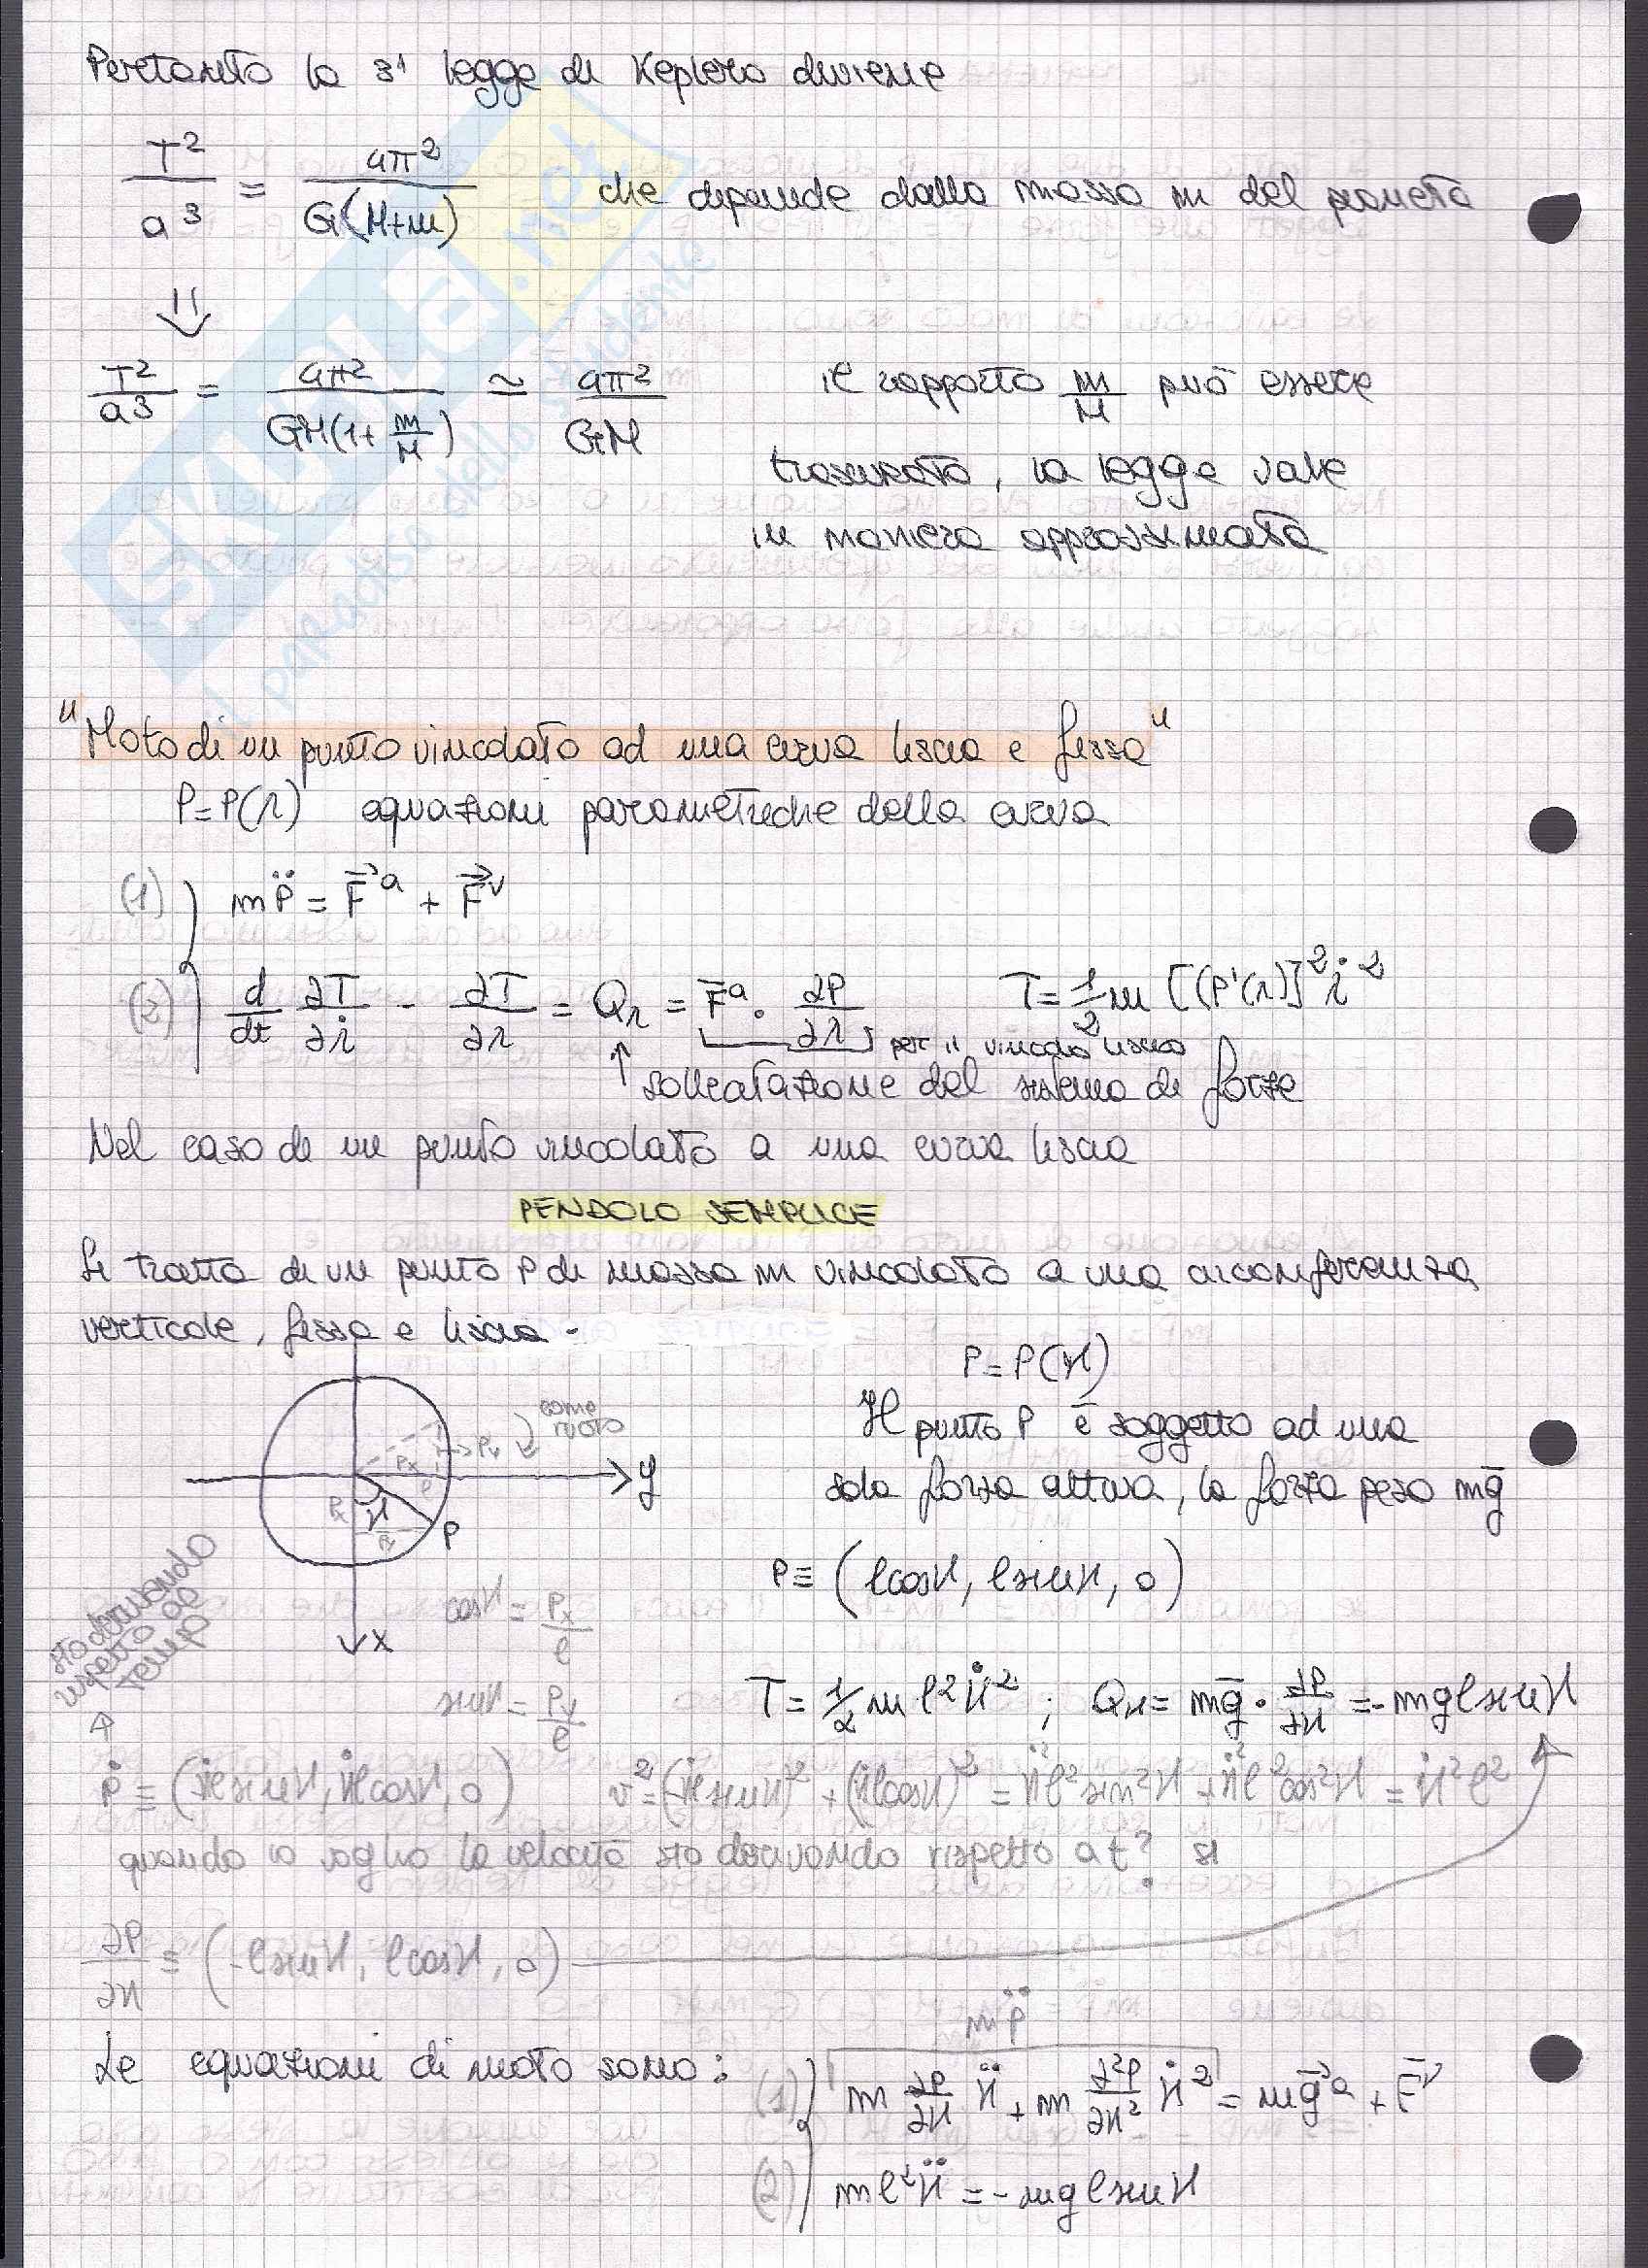 Pertanto la 3ª legge di Keplero diviene
T²/a³ = 4π²/G(M+m) che dipende dalla massa m del pianeta
⇓
T²/a³ = 4π²/GM(1+m/M) ≃ 4π²/GM il rapporto m/M può essere
trascurato, la legge vale
in maniera approssimata
"Moto di un punto vincolato ad una curva liscia e fissa"
P=P(λ) equazioni parametriche della curva
(1) mP̈ = F⃗ᵃ + F⃗ᵛ
(2) d/dt ∂T/∂λ̇ - ∂T/∂λ = Qλ = F̄ᵃ · ∂P/∂λ T=1/2 m [(P'(λ)]² λ̇²
per il vincolo liscio
↑ sollecitazione del sistema di forze
Nel caso di un punto vincolato a una curva liscia
PENDOLO SEMPLICE
Si tratta di un punto P di massa m vincolato a una circonferenza
verticale, fissa e liscia.
P=P(ϑ)
Il punto P è soggetto ad una
sola forza attiva, la forza peso mḡ
come ruoto
Px
Py
ℓ
y
Px
ϑ
Py
P
x
P≡(ℓcosϑ, ℓsinϑ, 0)
cosϑ = Px/ℓ
sto derivando
rispetto al
tempo
sinϑ = Py/ℓ
T=1/2 mℓ²ϑ̇² ; Qϑ = mḡ · ∂P/∂ϑ = -mgℓsinϑ
Ṗ ≡ (-ϑ̇ℓsinϑ, ϑ̇ℓcosϑ, 0) v²=(-ϑ̇ℓsinϑ)² + (ϑ̇ℓcosϑ)² = ϑ̇²ℓ²sin²ϑ + ϑ̇²ℓ²cos²ϑ = ϑ̇²ℓ²
quando io voglio la velocità sto derivando rispetto a t? sì
∂P/∂ϑ ≡ (-ℓsinϑ, ℓcosϑ, 0)
mP̈
Le equazioni di moto sono: (1) m ∂P/∂ϑ ϑ̈ + m ∂²P/∂ϑ² ϑ̇² = mg⃗ᵃ + F̄ᵛ
(2) mℓ²ϑ̈ = -mgℓsinϑ
SKUOLA.net
il paradiso dello studente